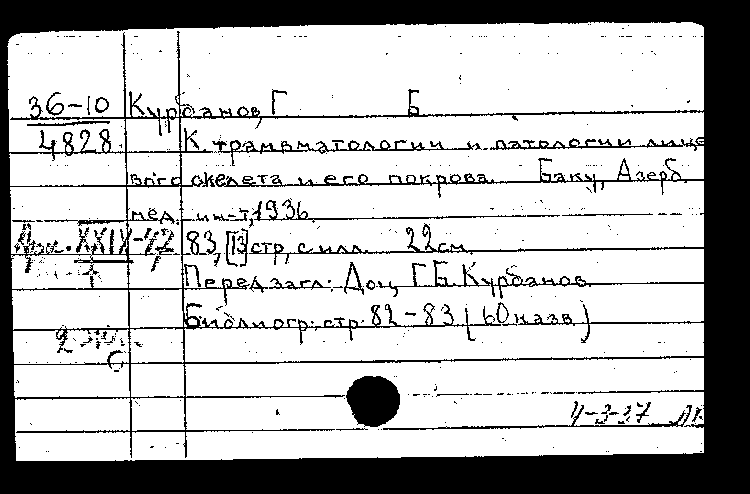 36-10 Курбанов, Г Б
4828 К трамвматологии и патологии лице
вого скелета и его покрова. Баку, Азерб.
мед. ин-т, 1936.
Арх. XXIX-47 83, [1] стр, с илл. 22 см.
7 Перед загл: Доц. Г. Б. Курбанов
Библиогр: стр. 82-83 (60 назв)
2 экз.
4-3-37